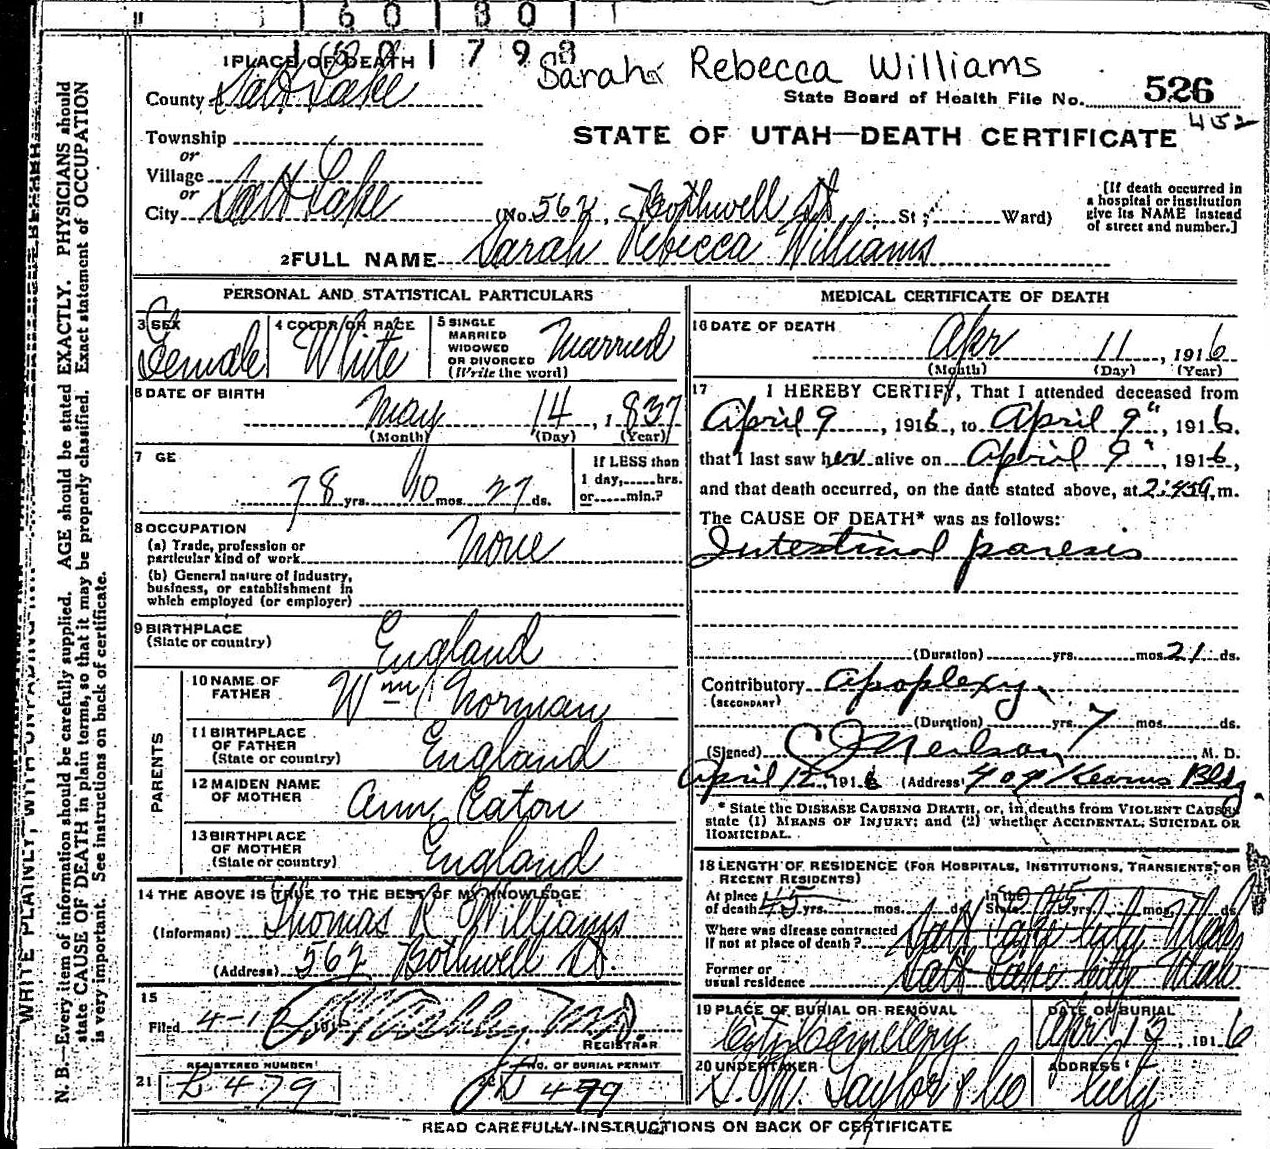 6 0 8 0
60 798
Sarah Rebecca Williams
1 PLACE OF DEATH
County Salt Lake
State Board of Health File No. 526
452
Township
or
Village
or
City Salt Lake
STATE OF UTAH—DEATH CERTIFICATE
(No. 562, Bothwell St. St.; Ward)
[If death occurred in
a hospital or institution
give its NAME instead
of street and number.]
2 FULL NAME Sarah Rebecca Williams
PERSONAL AND STATISTICAL PARTICULARS
3 SEX
Female
4 COLOR OR RACE
White
5 SINGLE
MARRIED
WIDOWED
OR DIVORCED
(Write the word)
Married
6 DATE OF BIRTH
May 14, 1837
(Month) (Day) (Year)
7 GE
78 yrs. 10 mos. 27 ds.
If LESS than
1 day, hrs.
or min.?
8 OCCUPATION
(a) Trade, profession or
particular kind of work None
(b) General nature of industry,
business, or establishment in
which employed (or employer)
9 BIRTHPLACE
(State or country) England
PARENTS
10 NAME OF
FATHER Wm Norman
11 BIRTHPLACE
OF FATHER
(State or country) England
12 MAIDEN NAME
OF MOTHER Ann Eaton
13 BIRTHPLACE
OF MOTHER
(State or country) England
14 THE ABOVE IS TRUE TO THE BEST OF MY KNOWLEDGE
(Informant) Thomas R Williams
(Address) 562 Bothwell St.
15
Filed 4-1
REGISTRAR
REGISTERED NUMBER
NO. OF BURIAL PERMIT
21 479
MEDICAL CERTIFICATE OF DEATH
16 DATE OF DEATH
Apr 11, 1916
(Month) (Day) (Year)
17 I HEREBY CERTIFY, That I attended deceased from
April 9, 1916, to April 9", 1916.
that I last saw her alive on April 9", 1916,
and that death occurred, on the date stated above, at m.
The CAUSE OF DEATH* was as follows:
Intestinal paresis
(Duration) yrs. mos. 21 ds.
Contributory Apoplexy
(SECONDARY)
(Duration) yrs. 7 mos. ds.
(Signed) Neilson M. D.
April 12, 1916 (Address) Kearns Bldg.
* State the DISEASE CAUSING DEATH, or, in deaths from VIOLENT CAUSES
state (1) MEANS OF INJURY; and (2) whether ACCIDENTAL, SUICIDAL OR
HOMICIDAL.
18 LENGTH OF RESIDENCE (FOR HOSPITALS, INSTITUTIONS, TRANSIENTS, OR
RECENT RESIDENTS)
At place
of death 45 yrs. mos. ds.
In the
State 45 yrs. mos. ds.
Where was disease contracted
if not at place of death? Salt Lake City Utah
Former or
usual residence Salt Lake City Utah
19 PLACE OF BURIAL OR REMOVAL
City Cemetery
DATE OF BURIAL
Apr 13, 1916
20 UNDERTAKER
S. M. Taylor & Co
ADDRESS
City
READ CAREFULLY INSTRUCTIONS ON BACK OF CERTIFICATE
WRITE PLAINLY, WITH UNFADING IN
N. B.—Every item of information should be carefully supplied. AGE should be stated EXACTLY. PHYSICIANS should
state CAUSE OF DEATH in plain terms, so that it may be properly classified. Exact statement of OCCUPATION
is very important. See instructions on back of certificate.